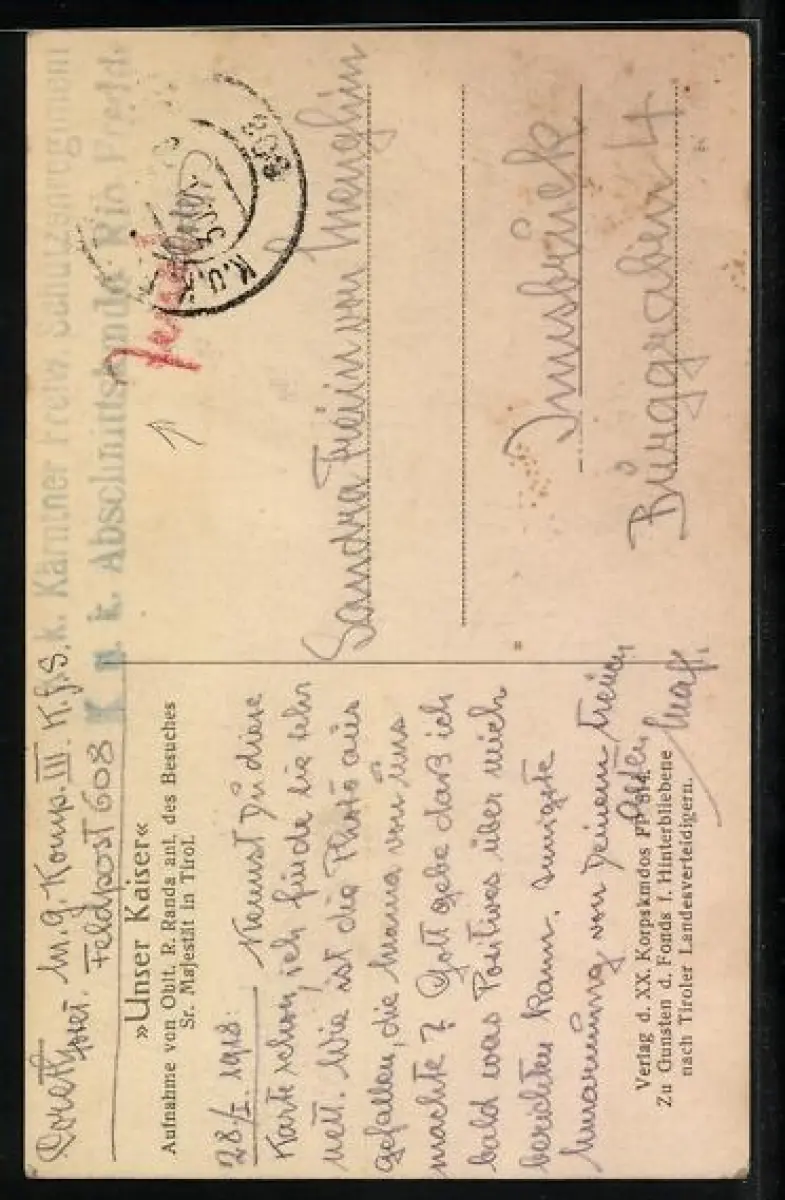 M.G. Komp. III. K.f.S.
Feldpost 608
»Unser Kaiser«
Aufnahme von Oblt. R. Randa anl. des Besuches
Sr. Majestät in Tirol.
28/I. 1918. Kennst Du diese
Karte schon, ich finde sie sehr
nett. Wie ist die Photo aus
gefallen, die Mama von uns
machte? Gott gebe daß ich
bald was Positives über mich
berichten kann. Innigste
Umarmung von Deinem treuen
Verlag d. XX. Korpskmdos FP 514.
Zu Gunsten d. Fonds f. Hinterbliebene
nach Tiroler Landesverteidigern.
k. Kärntner Freiw. Schützenregiment
K. u. k. Abschnittskmdo Rio Freddo
K.U.K.
608
Sandra Freiin von Menghin
Innsbruck
Burggraben 4